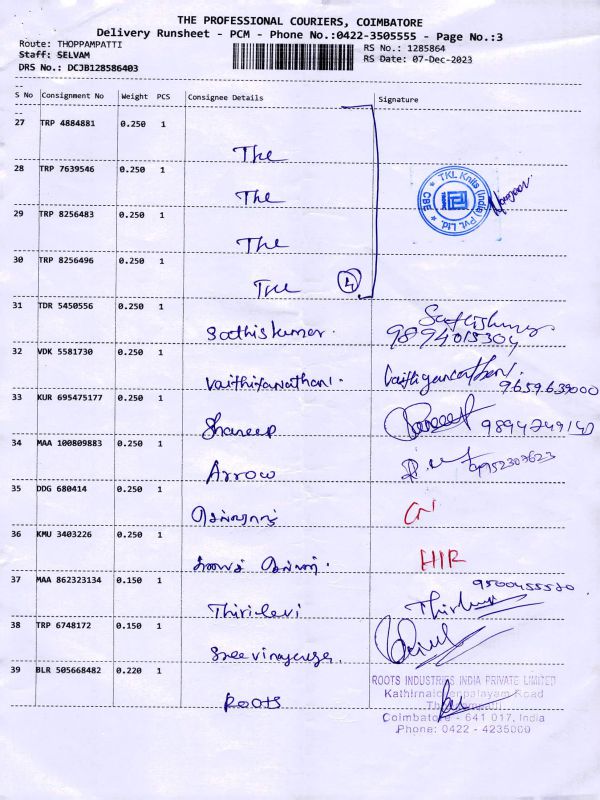 THE PROFESSIONAL COURIERS, COIMBATORE
Delivery Runsheet - PCM - Phone No.:0422-3505555 - Page No.:3
Route: THOPPAMPATTI RS No.: 1285864
Staff: SELVAM RS Date: 07-Dec-2023
DRS No.: DCJB128586403
S No Consignment No Weight PCS Consignee Details Signature
27 TRP 4884881 0.250 1
The
28 TRP 7639546 0.250 1
The
TKL Knits (India) Pvt. Ltd. * CBE *
29 TRP 8256483 0.250 1
The
30 TRP 8256496 0.250 1
The 4
31 TDR 5450556 0.250 1
Sathiskumar. Sathishkumar
9894015304
32 VDK 5581730 0.250 1
Vaithiyanathan. Vaithiyanathan.
9659639000
33 KUR 695475177 0.250 1
Shareep 9894749140
34 MAA 100809883 0.250 1
Arrow 9952307623
35 DDG 680414 0.250 1
36 KMU 3403226 0.250 1
HIR
37 MAA 862323134 0.150 1
9500455520
Thirilevi
38 TRP 6748172 0.150 1
Sree vinayaga.
39 BLR 505668482 0.220 1
ROOTS
ROOTS INDUSTRIES INDIA PRIVATE LIMITED
Road
Coimbatore - 641 017, India
Phone: 0422 - 4235000